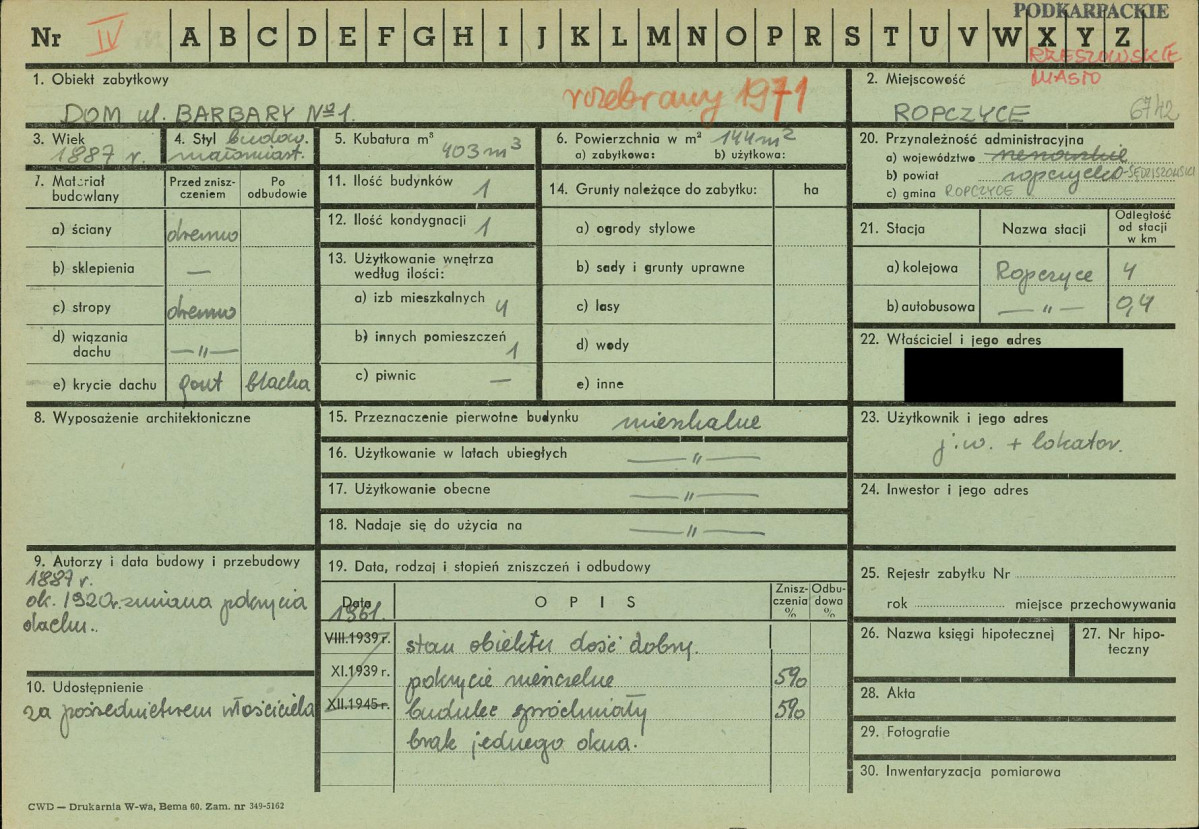 PODKARPACKIE
Nr IV A B C D E F G H I J K L M N O P R S T U V W X Y Z
RZESZOWSKIE
MIASTO
1. Obiekt zabytkowy
DOM ul. BARBARY Nº 1.
rozebrany 1971
2. Miejscowość
ROPCZYCE 6742
3. Wiek
1887 r.
4. Styl budow.
małomiast.
5. Kubatura m³
403 m³
6. Powierzchnia w m² 144 m²
a) zabytkowa: b) użytkowa:
20. Przynależność administracyjna
a) województwo rzeszowskie
b) powiat ropczycko-SĘDZISZOWSKI
c) gmina ROPCZYCE
7. Materiał budowlany
Przed znisz-
czeniem
Po
odbudowie
a) ściany drewno
b) sklepienia —
c) stropy drewno
d) wiązania
dachu —„—
e) krycie dachu gont blacha
11. Ilość budynków 1
12. Ilość kondygnacji 1
13. Użytkowanie wnętrza
według ilości:
a) izb mieszkalnych 4
b) innych pomieszczeń 1
c) piwnic —
14. Grunty należące do zabytku: ha
a) ogrody stylowe
b) sady i grunty uprawne
c) lasy
d) wody
e) inne
21. Stacja Nazwa stacji Odległość
od stacji
w km
a) kolejowa Ropczyce 4
b) autobusowa —„— 0,4
22. Właściciel i jego adres
8. Wyposażenie architektoniczne
15. Przeznaczenie pierwotne budynku mieszkalne
16. Użytkowanie w latach ubiegłych —„—
17. Użytkowanie obecne —„—
18. Nadaje się do użycia na —„—
23. Użytkownik i jego adres
j.w. + lokator.
24. Inwestor i jego adres
9. Autorzy i data budowy i przebudowy
1887 r.
ok. 1920 r. zmiana pokrycia
dachu.
10. Udostępnienie
za pośrednictwem właściciela
19. Data, rodzaj i stopień zniszczeń i odbudowy
Data OPIS Znisz-
czenia
% Odbu-
dowa
%
1961.
VIII.1939 r. stan obiektu dość dobry.
XI.1939 r. pokrycie nieszczelne 5%
XII.1945 r. budulec spróchniały 5%
brak jednego okna.
25. Rejestr zabytku Nr
rok miejsce przechowywania
26. Nazwa księgi hipotecznej
27. Nr hipo-
teczny
28. Akta
29. Fotografie
30. Inwentaryzacja pomiarowa
CWD — Drukarnia W-wa, Bema 60. Zam. nr 349-5162